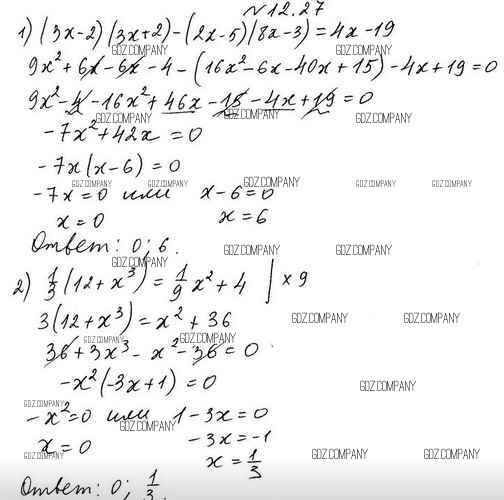 №12.27
1) (3x-2)(3x+2)-(2x-5)(8x-3)=4x-19
GDZ.COMPANY GDZ.COMPANY GDZ.COMPANY
9x²+6x-6x-4-(16x²-6x-40x+15)-4x+19=0
9x²-4-16x²+46x-15-4x+19=0
GDZ.COMPANY GDZ.COMPANY GDZ.COMPANY
-7x²+42x=0
-7x(x-6)=0
GDZ.COMPANY GDZ.COMPANY GDZ.COMPANY GDZ.COMPANY GDZ.COMPANY
-7x=0 или x-6=0
x=0 x=6
Ответ: 0; 6.
GDZ.COMPANY GDZ.COMPANY GDZ.COMPANY
2) 1/3(12+x³)=1/9x²+4 | ×9
3(12+x³)=x²+36
GDZ.COMPANY GDZ.COMPANY
GDZ.COMPANY GDZ.COMPANY
36+3x³-x²-36=0
-x²(-3x+1)=0
GDZ.COMPANY
GDZ.COMPANY
-x²=0 или 1-3x=0
GDZ.COMPANY
x=0 -3x=-1
GDZ.COMPANY GDZ.COMPANY GDZ.COMPANY
x=1/3
Ответ: 0; 1/3.